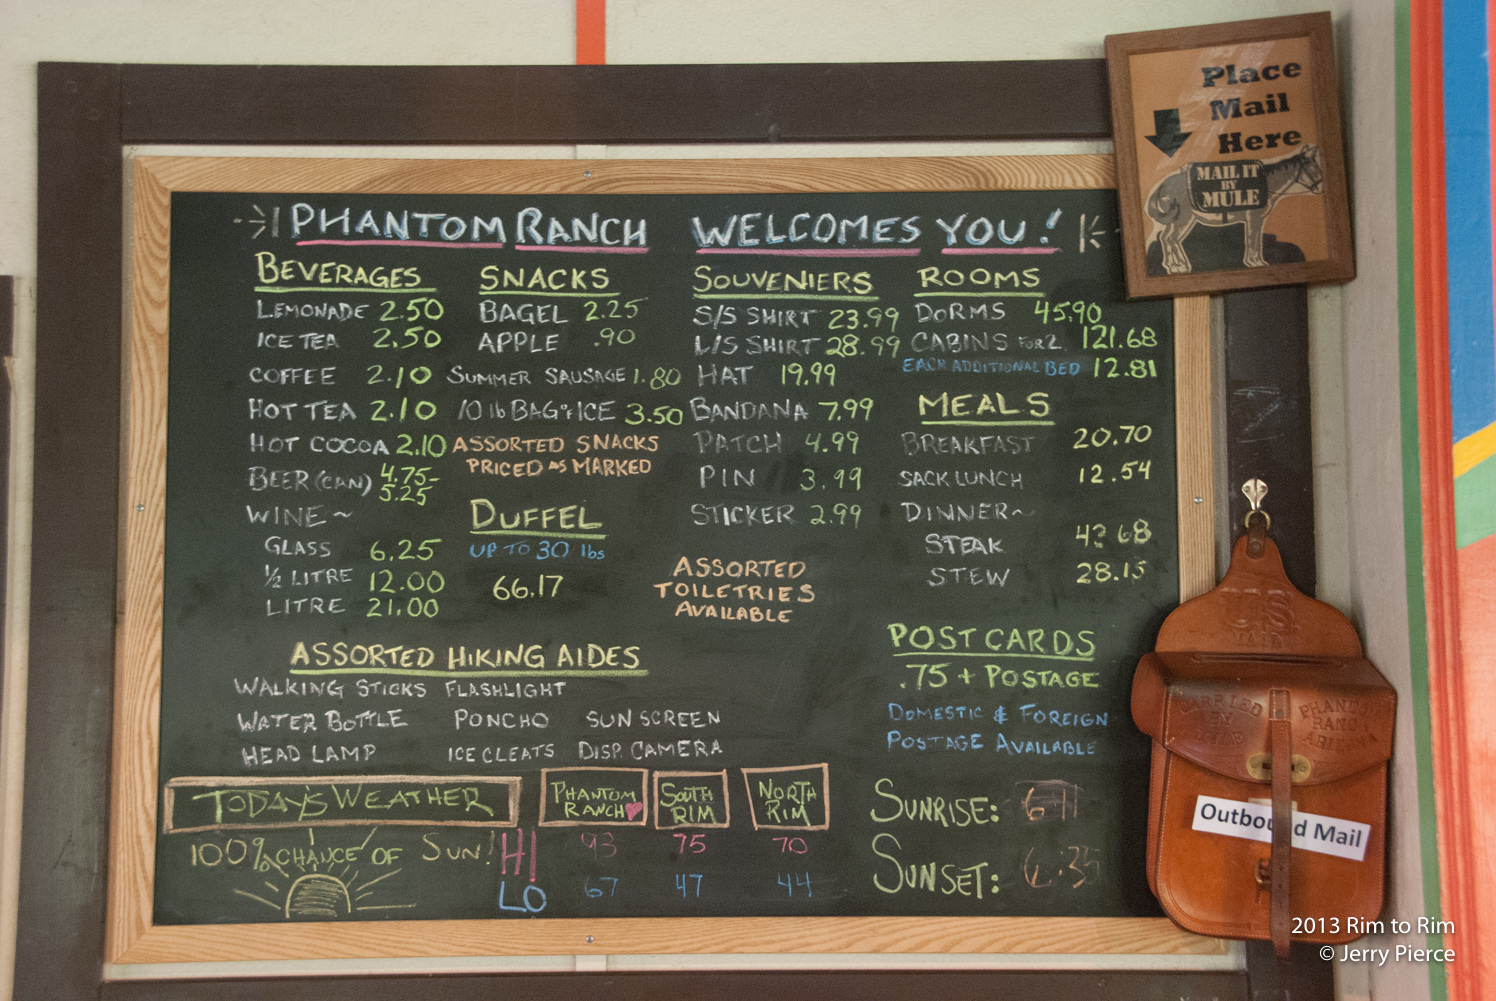 PHANTOM RANCH WELCOMES YOU!
BEVERAGES
LEMONADE 2.50
ICE TEA 2.50
COFFEE 2.10
HOT TEA 2.10
HOT COCOA 2.10
BEER (CAN) 4.75-
5.25
WINE ~
GLASS 6.25
½ LITRE 12.00
LITRE 21.00
SNACKS
BAGEL 2.25
APPLE .90
SUMMER SAUSAGE 1.80
10 lb BAG of ICE 3.50
ASSORTED SNACKS
PRICED AS MARKED
DUFFEL
UP TO 30 lbs
66.17
SOUVENIERS
S/S SHIRT 23.99
L/S SHIRT 28.99
HAT 19.99
BANDANA 7.99
PATCH 4.99
PIN 3.99
STICKER 2.99
ASSORTED
TOILETRIES
AVAILABLE
ROOMS
DORMS 45.90
CABINS FOR 2 121.68
EACH ADDITIONAL BED 12.81
MEALS
BREAKFAST 20.70
SACK LUNCH 12.54
DINNER ~
STEAK
STEW 28.15
POST CARDS
.75 + POSTAGE
DOMESTIC & FOREIGN
POSTAGE AVAILABLE
ASSORTED HIKING AIDES
WALKING STICKS FLASHLIGHT
WATER BOTTLE PONCHO SUN SCREEN
HEAD LAMP ICE CLEATS DISP. CAMERA
TODAY'S WEATHER
100% CHANCE OF SUN!
PHANTOM RANCH SOUTH RIM NORTH RIM
HI 93 75 70
LO 67 47 44
SUNRISE:
SUNSET:
Place
Mail
Here
MAIL IT
BY
MULE
U.S.
MAIL
CARRIED
BY
MULE
PHANTOM
RANCH
Outbound Mail
2013 Rim to Rim
© Jerry Pierce